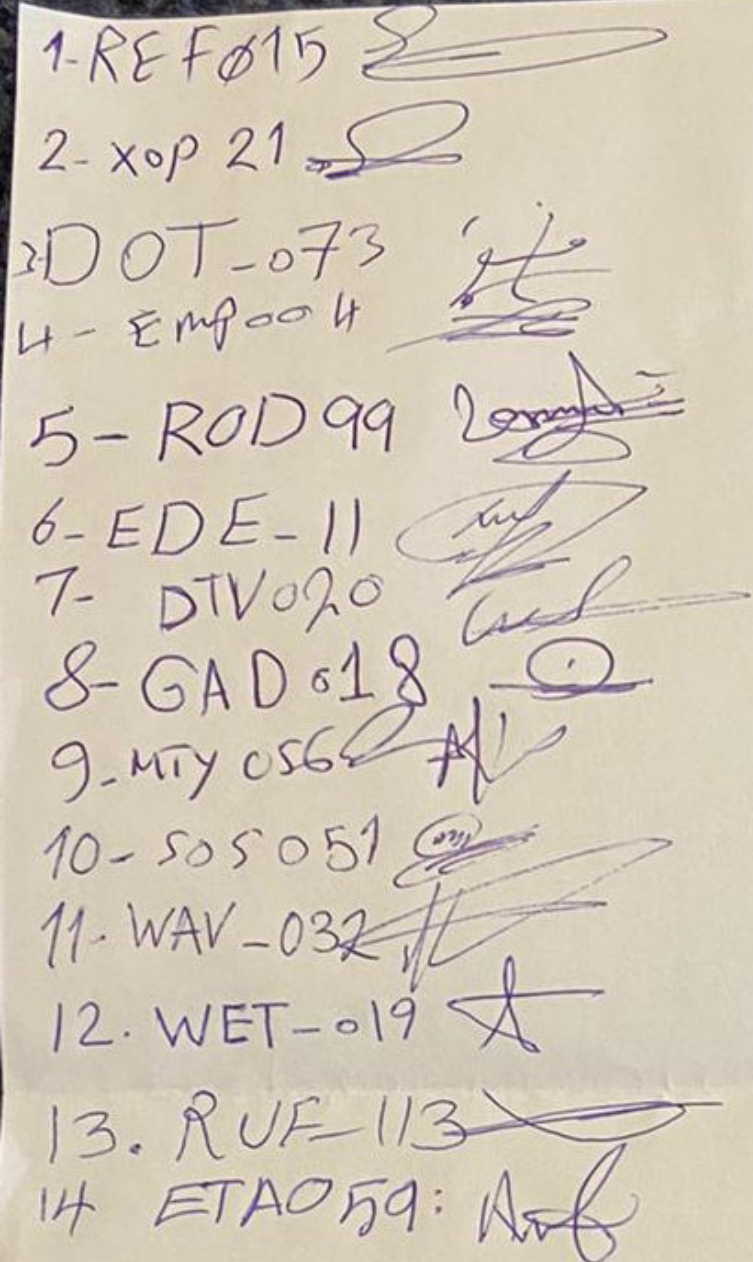 1-REFØ15
2- xop 21
3-DOT-073
4- EMP004
5- ROD99
6-EDE-11
7- DTV020
8-GAD018
9-MTY 056
10-SOS 051
11-WAV-032
12. WET-019
13. RUF-113
14 ETA059: